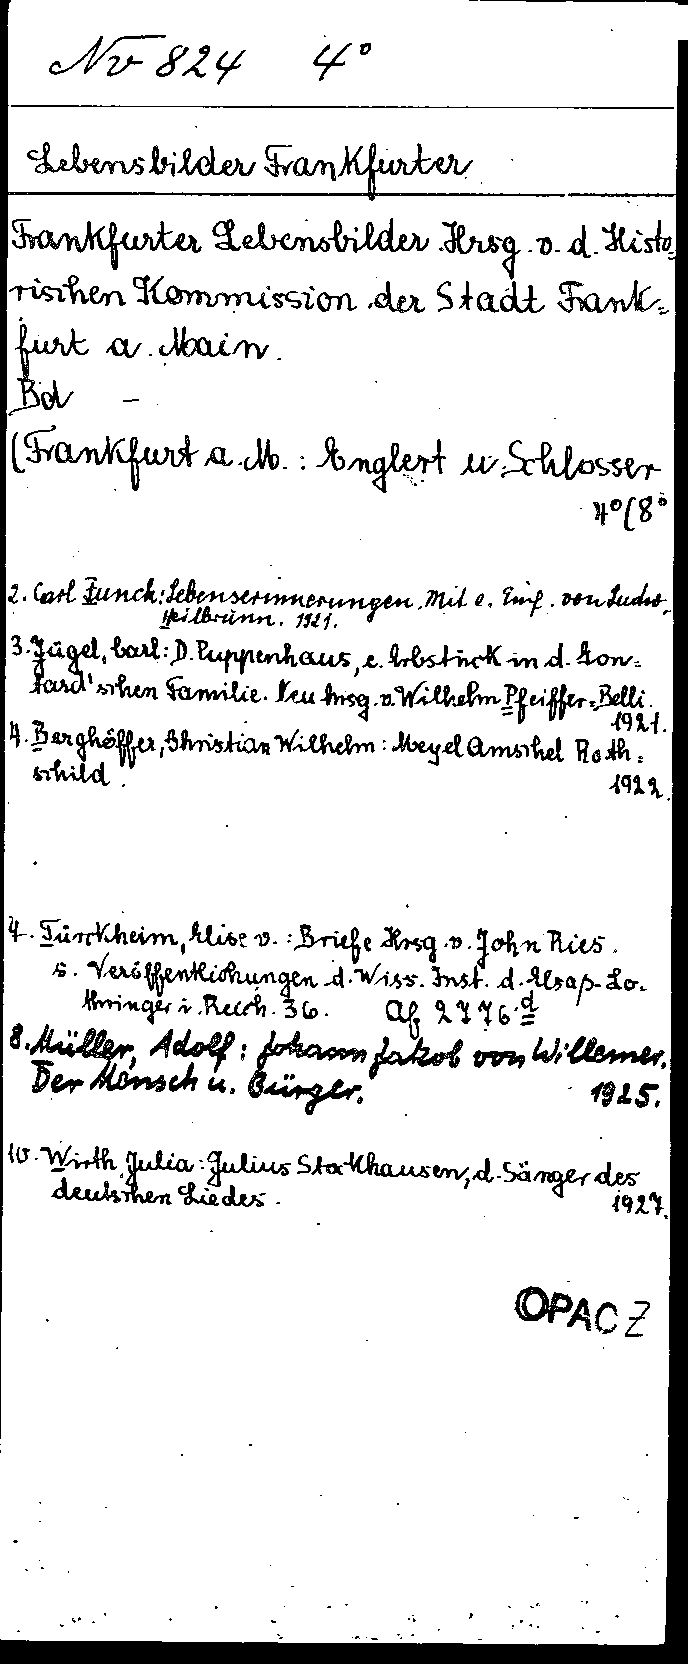 Nv 824 4°
Lebensbilder Frankfurter
Frankfurter Lebensbilder. Hrsg. v. d. Histo-
rischen Kommission der Stadt Frank=
furt a. Main.
Bd –
(Frankfurt a. M. : Englert u. Schlosser
4°(8°
2. Carl Funck: Lebenserinnerungen. Mit e. Einf. von Ludw.
Heilbrunn. 1921.
3. Jügel, Carl: D. Puppenhaus, e. Erbstück in d. Gon=
tard'schen Familie. Neu hrsg. v. Wilhelm Pfeiffer=Belli.
1921.
4. Berghöffer, Christian Wilhelm: Meyel Amschel Roth=
schild.
1922.
7. Türckheim, Elise v. : Briefe Hrsg. v. John Ries.
s. Veröffentlichungen d. Wiss. Inst. d. Elsaß-Lo-
thringer i. Reich. 36. Af 2776 d
8. Müller, Adolf: Johann Jakob von Willemer.
Der Mensch u. Bürger. 1925.
10. Wirth, Julia: Julius Stockhausen, d. Sänger des
deutschen Liedes. 1927.
OPAC Z